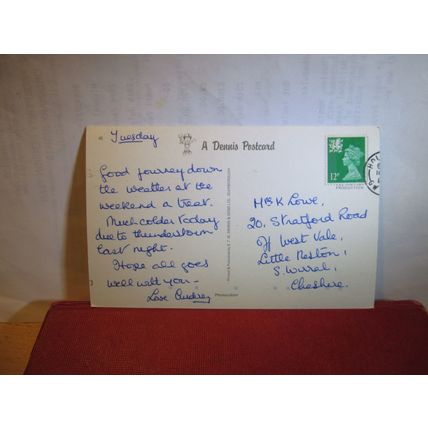 Tuesday
A Dennis Postcard
Good journey down
the weather at the
weekend a treat.
Much colder today
due to thunderstorm
last night.
Hope all goes
well with you -
Love Audrey
Photocolour
12P
Mrs K Lowe,
20, Stratford Road
Off West Vale,
Little Neston,
S. Wirral,
Cheshire.